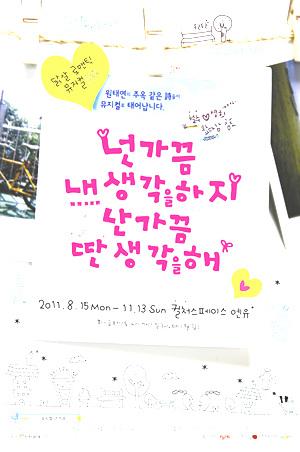 닭살 로맨틱
뮤지컬
원태연의 주옥 같은 詩들이
뮤지컬로 태어납니다.
넌가끔
내생각을하지
난가끔
딴생각을해
2011.8.15Mon－11.13Sun 컬처스페이스 엔유